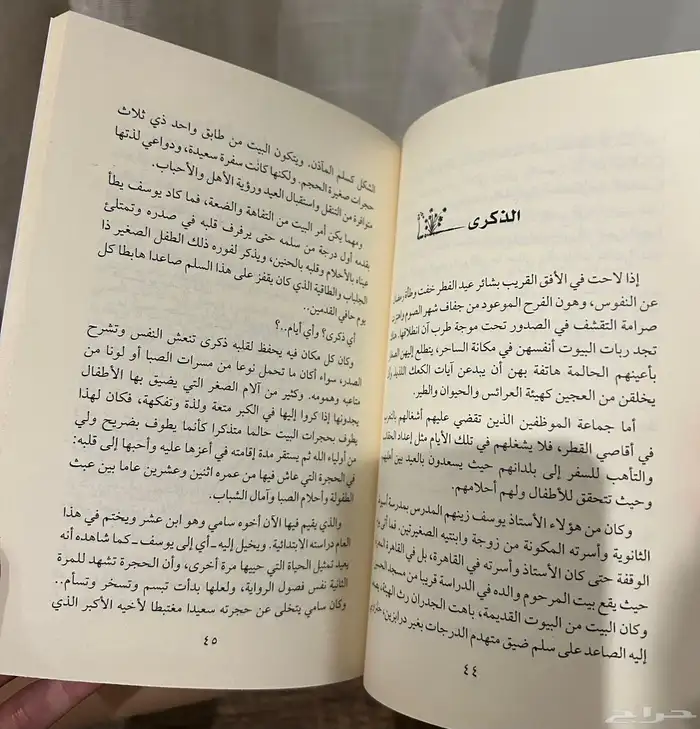 الذكرى
إذا لاحت في الأفق القريب بشائر عيد الفطر خفت وطأة رمضان
عن النفوس، وهون الفرح الموعود من جفاف شهر الصوم
صرامة التقشف في الصدور تحت موجة طرب آن انطلاقها.
تجد ربات البيوت أنفسهن في مكانة الساحر، يتطلع إليهن الصغار
بأعينهم الحالمة هاتفة بهن أن يبدعن آيات الكعك اللذيذ
يخلقن من العجين كهيئة العرائس والحيوان والطير.
أما جماعة الموظفين الذين تقضي عليهم أشغالهم
في أقاصي القطر، فلا يشغلهم في تلك الأيام مثل إعداد الحقائب
والتأهب للسفر إلى بلدانهم حيث يسعدون بالعيد بين أهليهم
وحيث تتحقق للأطفال ولهم أحلامهم.
وكان من هؤلاء الأستاذ يوسف زينهم المدرس بمدرسة
الثانوية وأسرته المكونة من زوجة وابنتيه الصغيرتين. فما
الوقفة حتى كان الأستاذ وأسرته في القاهرة، بل في القاهرة
حيث يقع بيت المرحوم والده في الدراسة قريبا من مسجد الحسين
وكان البيت من البيوت القديمة، باهت الجدران رث الهيئة،
إليه الصاعد على سلم ضيق متهدم الدرجات بغير درابزين
٤٤
الشكل كسلم المآذن. ويتكون البيت من طابق واحد ذي ثلاث
حجرات صغيرة الحجم. ولكنها كانت سفرة سعيدة، ودواعي لذتها
متوافرة من التنقل واستقبال العيد ورؤية الأهل والأحباب.
ومهما يكن أمر البيت من التفاهة والضعة، فما كاد يوسف يطأ
بقدمه أول درجة من سلمه حتى يرفرف قلبه في صدره وتمتلئ
عيناه بالأحلام وقلبه بالحنين، ويذكر لفوره ذلك الطفل الصغير ذا
الجلباب والطاقية الذي كان يقفز على هذا السلم صاعدا هابطا كل
يوم حافي القدمين..
أي ذكرى؟ وأي أيام..؟
وكان كل مكان فيه يحفظ لقلبه ذكرى تنعش النفس وتشرح
الصدر، سواء أكان ما تحمل نوعا من مسرات الصبا أو لونا من
متاعبه وهمومه. وكثير من آلام الصغر التي يضيق بها الأطفال
يجدونها إذا كروا إليها في الكبر متعة ولذة وتفكهة، فكان لهذا
يطوف بحجرات البيت حالما متذكرا كأنما يطوف بضريح ولي
من أولياء الله ثم يستقر مدة إقامته في أعزها عليه وأحبها إلى قلبه:
في الحجرة التي عاش فيها من عمره اثنين وعشرين عاما بين عبث
الطفولة وأحلام الصبا وآمال الشباب.
والذي يقيم فيها الآن أخوه سامي وهو ابن عشر ويختم في هذا
العام دراسته الابتدائية. ويخيل إليه ــ أي إلى يوسف ــ كما شاهده أنه
يعيد تمثيل الحياة التي حييها مرة أخرى، وأن الحجرة تشهد للمرة
الثانية نفس فصول الرواية، ولعلها بدأت تبسم وتسخر وتسأم..
وكان سامي يتخلى عن حجرته سعيدا مغتبطا لأخيه الأكبر الذي
٤٥
حراج